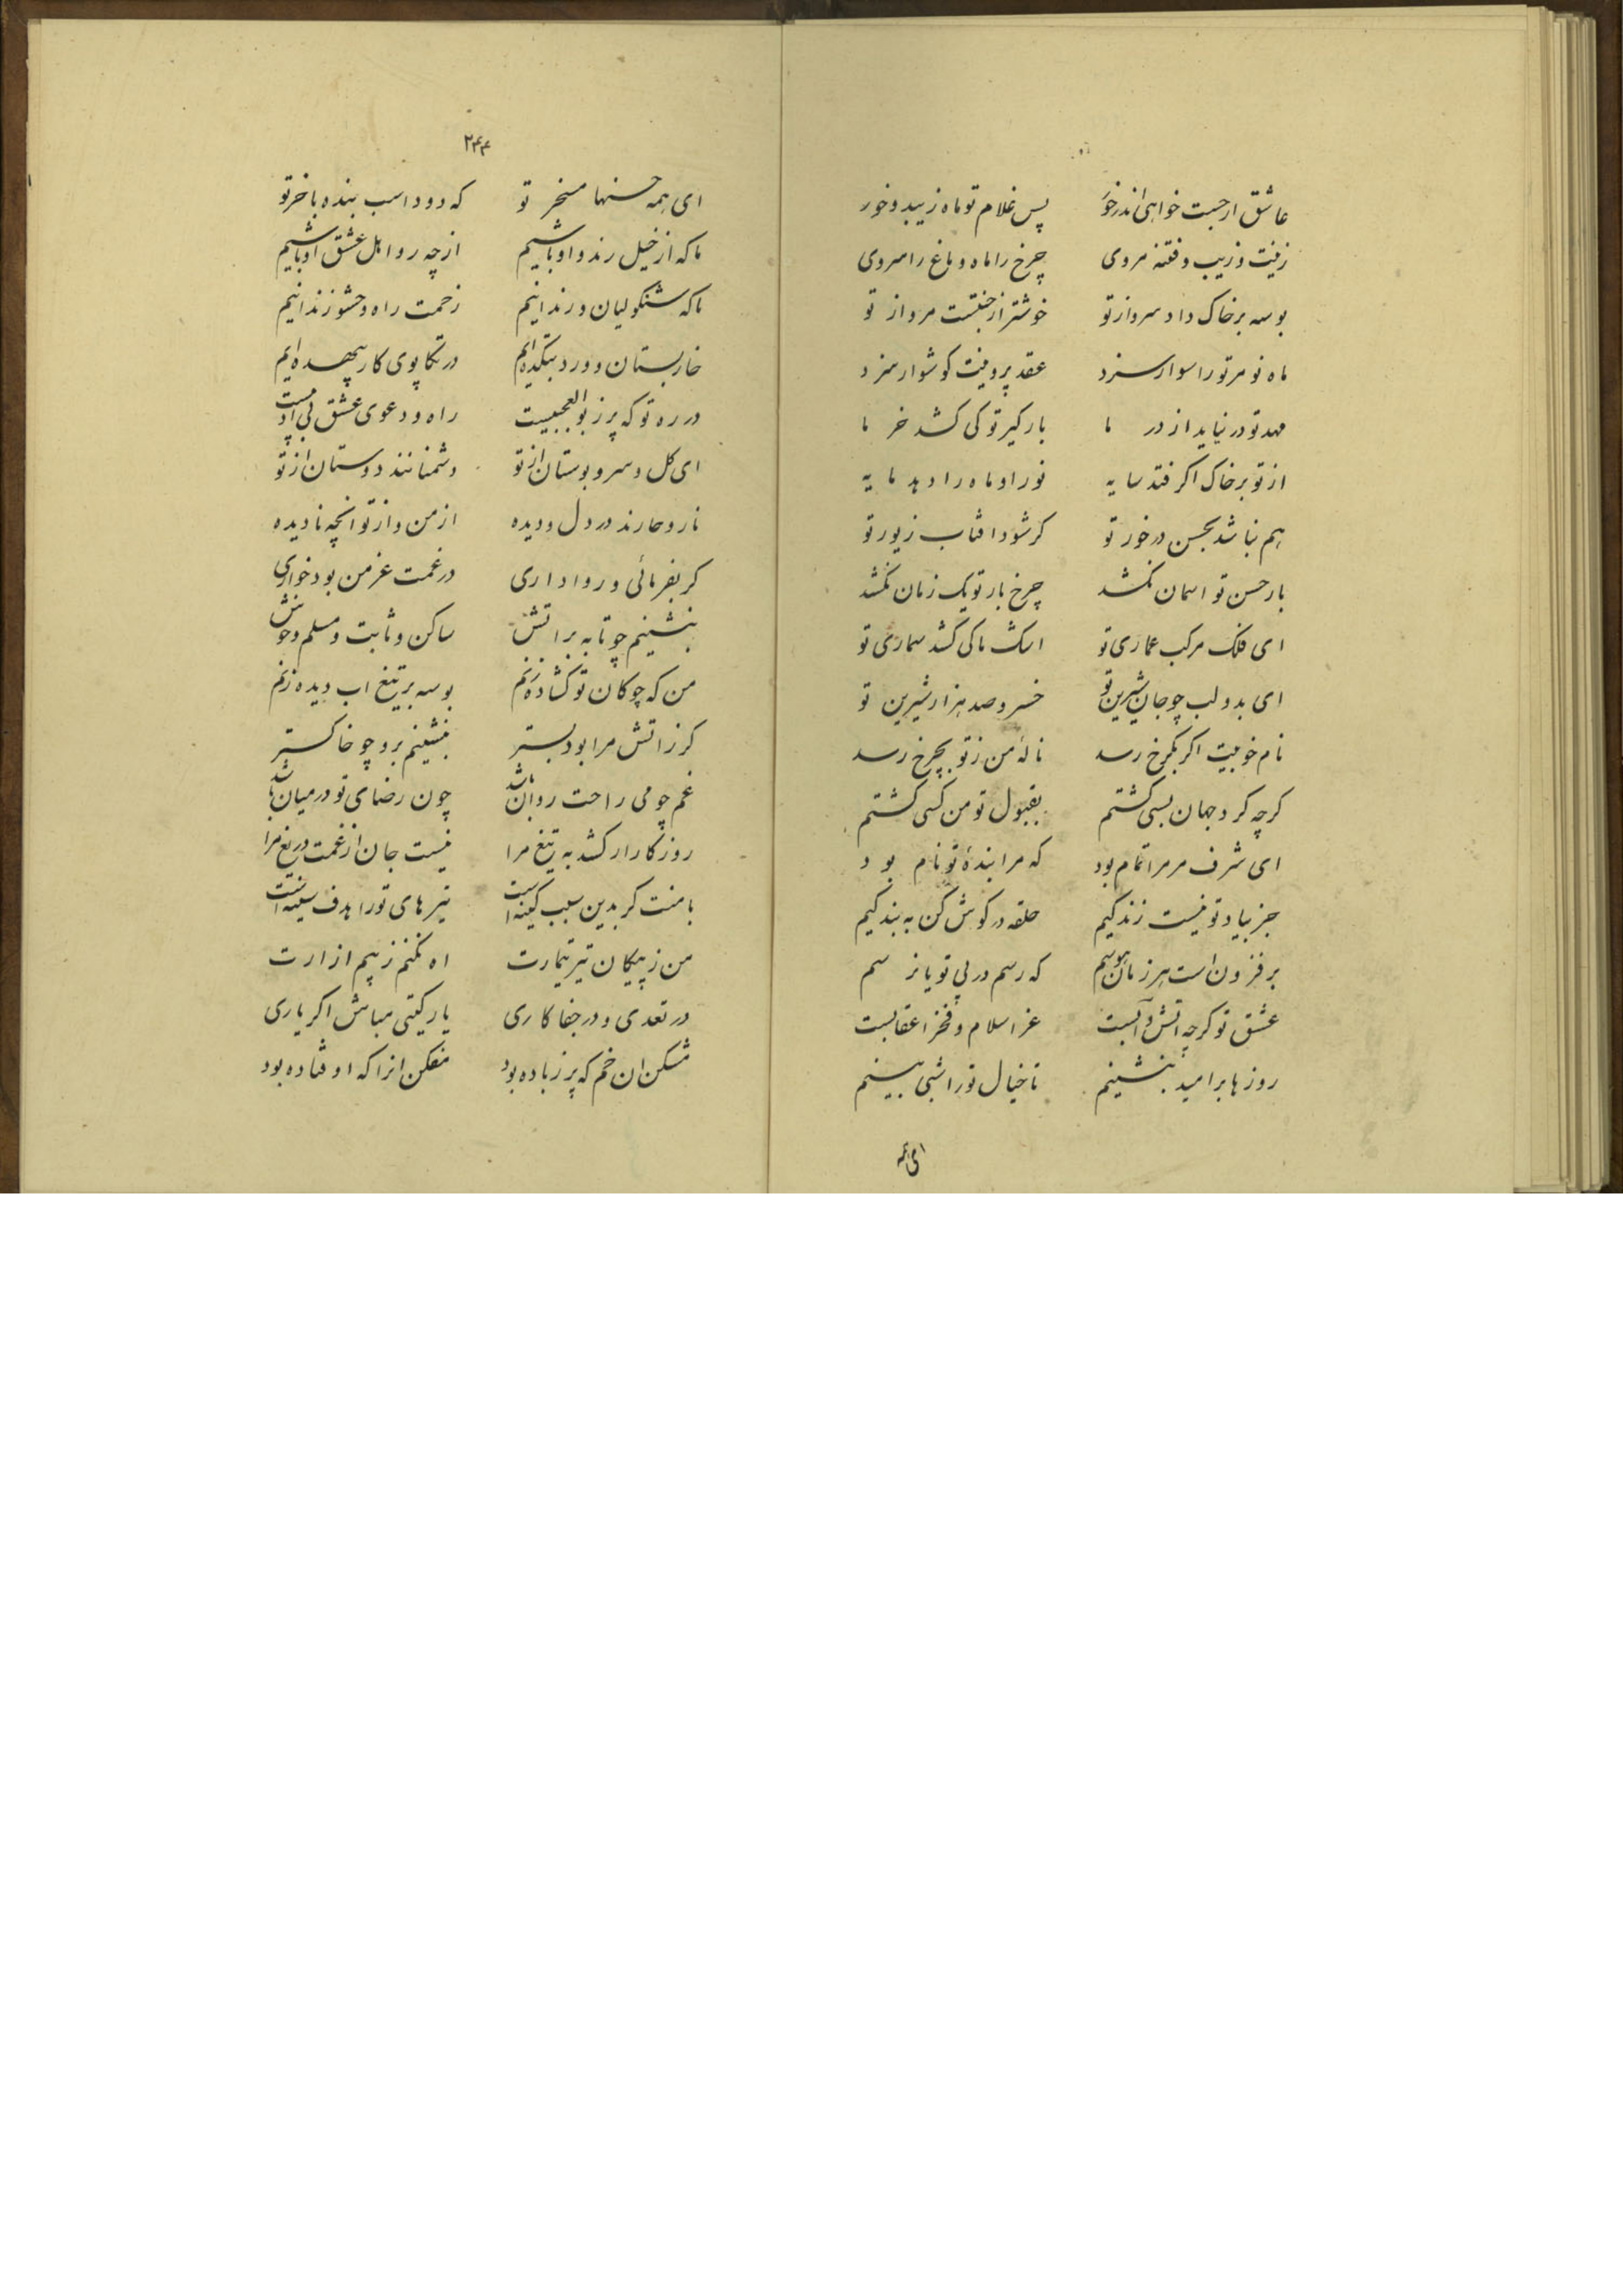 عاشق ارجست خواهی اندرخور پس غلام تو ماه زیبد و خور
زینت و زیب و فتنهٔ مروی چرخ را ماه و باغ را سروی
بوسه بر خاک داد سرو از تو خوشتر از جنتست مرو از تو
ماه نو مر تو را سوار سزد عقد پروینت کوشوار سزد
مهد تو در نیاید از در ما بارکیر تو کی کشد خر ما
از تو بر خاک اکر فتد سایه نور او ماه را دهد مایه
هم نباشد بحسن درخور تو کر شود افتاب زیور تو
بار حسن تو اسمان نکشد چرخ بار تو یک زمان نکشد
ای فلک مرکب عماری تو اسک ما کی کشد سماری تو
ای بدو لب چو جان شیرین تو خسرو صد هزار شیرین تو
نام خوبیت اکر بکرخ رسد نالهٔ من ز تو بچرخ رسد
کرچه کرد جهان بسی کشتم بقبول تو من کسی کشتم
ای شرف مر مرا تمام بود که مرا بندهٔ تو نام بود
جز بیاد تو نیست زندکیم حلقه در کوش کن به بندکیم
بر فزون است هر زمان هوسم که رسم در پی تو یا نرسم
عشق تو کرچه اتش و آبست عز اسلام و فخر اعقابست
روزها بر امید بنشینم تا خیال تو را شبی بینم
ای همه
۲۴۴
ای همه حسنها مسخر تو که دود اسب بنده با خر تو
ما که از خیل رند و اوباشیم از چه رو اهل عشق او باشیم
ما که شنکولیان و رندانیم زحمت راه و حشو زندانیم
خار بستان و ورد بتکده‌ایم در تکاپوی کار بیهده‌ایم
در ره تو که پر ز بوالعجبیست راه و دعوی عشق بی ادبیست
ای کل و سرو بوستان از تو دشمنانند دوستان از تو
نار و خارند در دل و دیده از من و از تو انچه نادیده
کر بفرمائی و روا داری در غمت عز من بود خواری
بنشینم چو تابه بر اتش ساکن و ثابت و مسلم و خوش
من که چوکان تو کشاده زنم بوسه بر تیغ اب دیده زنم
کر ز اتش مرا بود بستر بنشینم برو چو خاکستر
غم چو می راحت روان باشد چون رضای تو در میان باشد
روزکار ار کشد به تیغ مرا نیست جان از غمت دریغ مرا
با منت کر بدین سبب کینه است تیرهای تو را هدف سینه است
من ز پیکان تیر تیمارت اه نکنم ز بیم ازارت
در تعدی و در جفاکاری یار کیتی مباش اکر یاری
مشکن ان خم که پر ز باده بود مفکن انرا که او فتاده بود